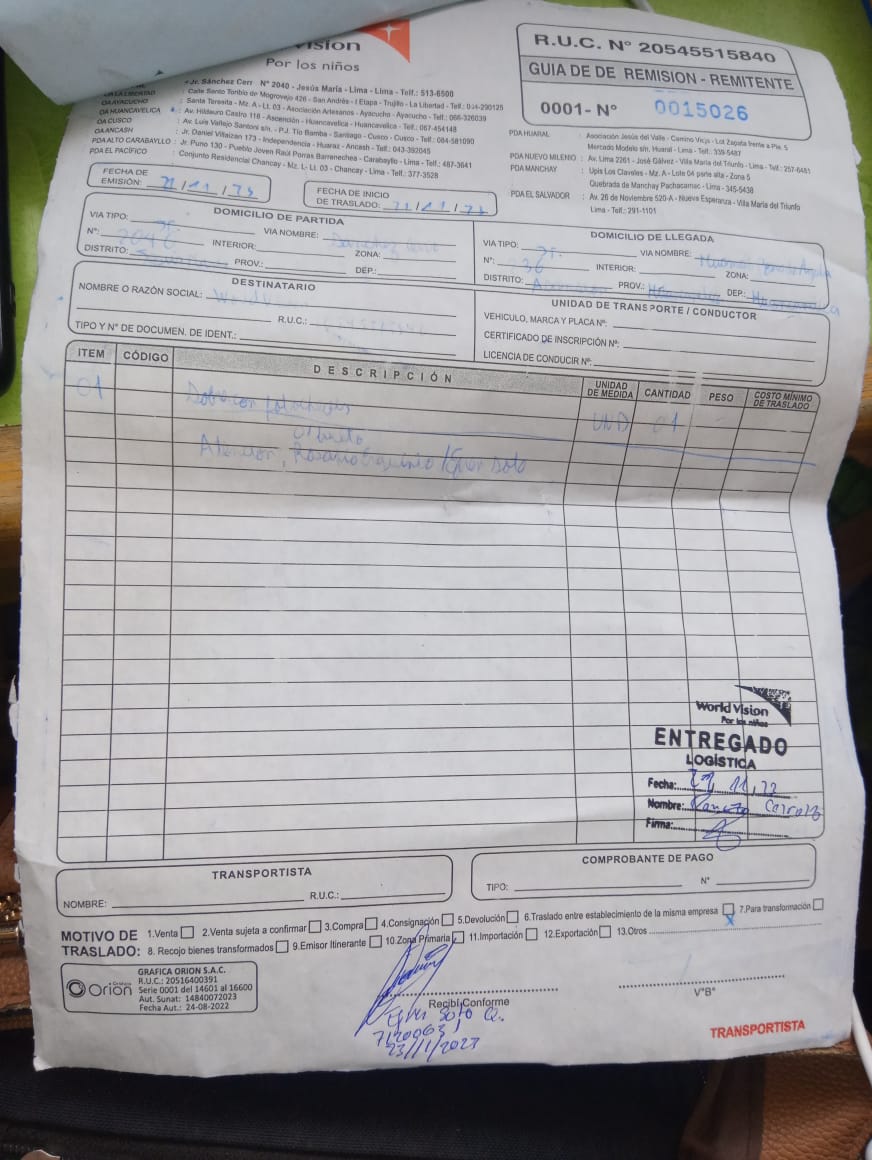 Vision
Por los niños
R.U.C. Nº 20545515840
GUIA DE DE REMISION - REMITENTE
0001- Nº 0015026
: Jr. Sánchez Cerr Nº 2040 - Jesús María - Lima - Lima - Telf.: 513-6500
OA LA LIBERTAD : Calle Santo Toribio de Mogrovejo 426 - San Andrés - I Etapa - Trujillo - La Libertad - Telf.: 044-290125
OA AYACUCHO : Santa Teresita - Mz. A - Lt. 03 - Asociación Artesanos - Ayacucho - Ayacucho - Telf.: 066-326039
OA HUANCAVELICA : Av. Hildauro Castro 116 - Ascención - Huancavelica - Huancavelica - Telf.: 067-454148
OA CUSCO : Av. Luis Vallejo Santoni s/n. - P.J. Tío Bamba - Santiago - Cusco - Cusco - Telf.: 084-581090
OA ANCASH : Jr. Daniel Villaizan 173 - Independencia - Huaraz - Ancash - Telf.: 043-392045
PDA ALTO CARABAYLLO : Jr. Puno 130 - Pueblo Joven Raúl Porras Barrenechea - Carabayllo - Lima - Telf.: 487-3641
PDA EL PACÍFICO : Conjunto Residencial Chancay - Mz. L- Lt. 03 - Chancay - Lima - Telf.: 377-3528
PDA HUARAL : Asociación Jesús del Valle - Camino Viejo - Lot Zapata frente a Pje. 5
Mercado Modelo s/n. Huaral - Lima - Telf.: 339-5487
PDA NUEVO MILENIO : Av. Lima 2261 - José Gálvez - Villa María del Triunfo - Lima - Telf.: 257-6481
PDA MANCHAY : Upis Los Claveles - Mz. A - Lote 04 parte alta - Zona 5
Quebrada de Manchay Pachacamac - Lima - 345-5438
PDA EL SALVADOR : Av. 26 de Noviembre 520-A - Nueva Esperanza - Villa María del Triunfo
Lima - Telf.: 291-1101
FECHA DE EMISIÓN: 21 / 11 / 23
FECHA DE INICIO DE TRASLADO: 21 / 11 / 23
DOMICILIO DE PARTIDA
VIA TIPO: Jr. VIA NOMBRE: Sanchez Cerro
Nº: 2040 INTERIOR: ZONA:
DISTRITO: PROV.: DEP.:
DOMICILIO DE LLEGADA
VIA TIPO: Jr. VIA NOMBRE:
Nº: 236 INTERIOR: ZONA:
DISTRITO: PROV.: DEP.:
DESTINATARIO
NOMBRE O RAZÓN SOCIAL: World
R.U.C.:
TIPO Y Nº DE DOCUMEN. DE IDENT.:
UNIDAD DE TRANSPORTE / CONDUCTOR
VEHICULO, MARCA Y PLACA Nº:
CERTIFICADO DE INSCRIPCIÓN Nº:
LICENCIA DE CONDUCIR Nº:
ITEM CÓDIGO DESCRIPCIÓN UNIDAD DE MEDIDA CANTIDAD PESO COSTO MÍNIMO DE TRASLADO
01 Sobre con UND 01
Atencion: Rosario / Egher Soto
World Vision
Por los niños
ENTREGADO
LOGÍSTICA
Fecha:
Nombre:
Firma:
TRANSPORTISTA
NOMBRE: R.U.C.:
COMPROBANTE DE PAGO
TIPO: Nº
MOTIVO DE TRASLADO: 1.Venta 2.Venta sujeta a confirmar 3.Compra 4.Consignación 5.Devolución 6.Traslado entre establecimiento de la misma empresa X 7.Para transformación
8. Recojo bienes transformados 9.Emisor Itinerante 10.Zona Primaria 11.Importación 12.Exportación 13.Otros
Orión
GRAFICA ORION S.A.C.
R.U.C.: 20516400391
Serie 0001 del 14601 al 16600
Aut. Sunat: 14840072023
Fecha Aut.: 24-08-2022
Recibí Conforme
Egher Soto Q.
71200631
V°B°
TRANSPORTISTA